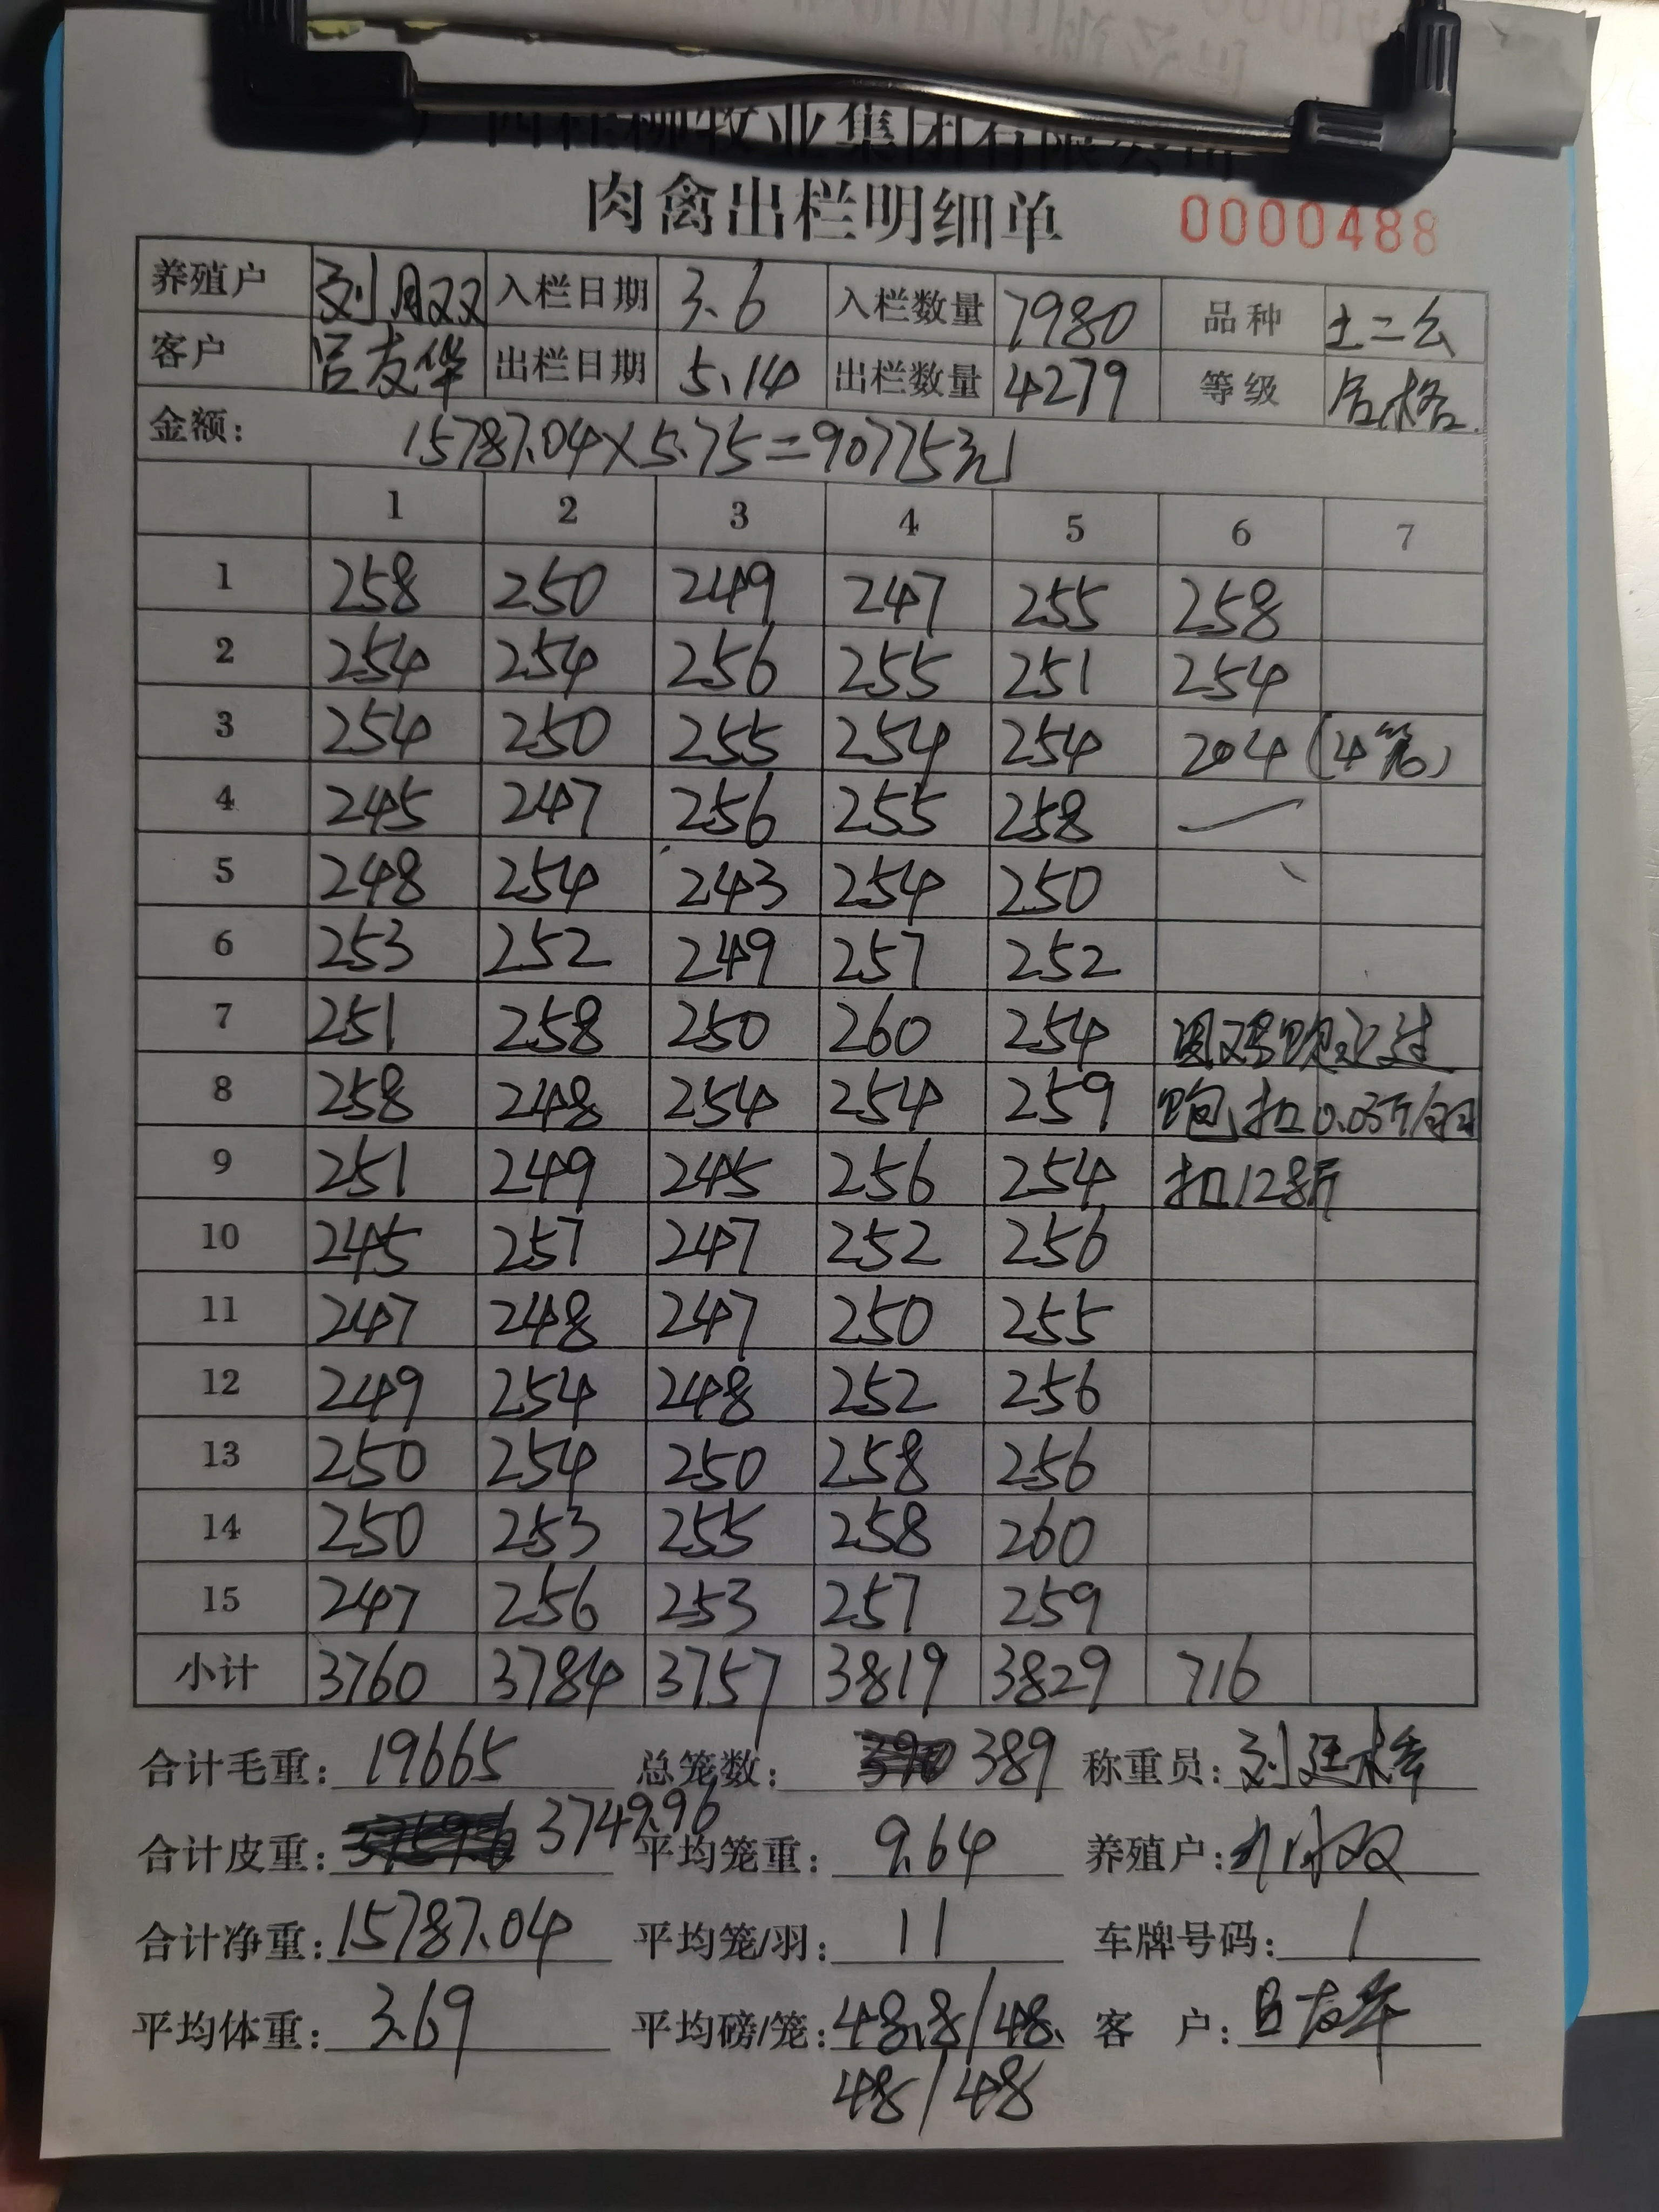 西桂柳牧业集团有限公司
肉禽出栏明细单 0000488
养殖户 刘月双 入栏日期 3.6 入栏数量 7980 品种 土二公
客户 吕友华 出栏日期 5.14 出栏数量 4279 等级 合格.
金额: 15787.04×5.75=90775元
1 2 3 4 5 6 7
1 258 250 249 247 255 258
2 254 254 256 255 251 254
3 254 250 255 254 254 204 (4笼)
4 245 247 256 255 258
5 248 254 243 254 250
6 253 252 249 257 252
7 251 258 250 260 254 因鸡饱过
8 258 248 254 254 259 饱,扣0.03斤/羽
9 251 249 245 256 254 扣128斤
10 245 257 247 252 256
11 247 248 247 250 255
12 249 254 248 252 256
13 250 254 250 258 256
14 250 253 255 258 260
15 247 256 253 257 259
小计 3760 3784 3757 3819 3829 716
合计毛重: 19665 总笼数: 389 称重员: 刘廷
合计皮重: 3749.96 平均笼重: 9.64 养殖户: 双
合计净重: 15787.04 平均笼/羽: 11 车牌号码: 1
平均体重: 3.69 平均磅/笼: 48.8/48. 客 户: 吕友华
48/48